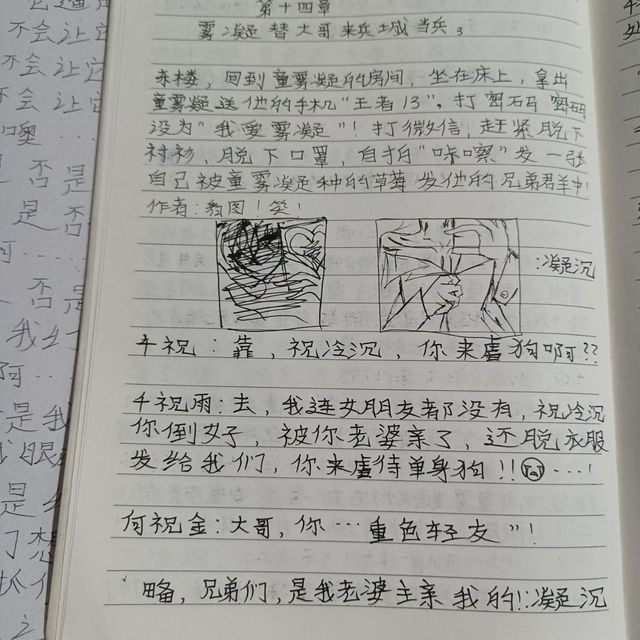 第十四章
雾凝替大哥来兵城当兵。
亲楼，回到童雾凝的房间，坐在床上，拿出
童雾凝送他的手机"王者13"。打密码 密码
设为"我爱雾凝"！打微信，赶紧脱下
衬衫，脱下口罩，自拍"咔嚓"发一张
自己被童雾凝种的草莓 发他的兄弟君羊中！
作者：看图！笑！
:凝沉
千祝：靠，祝冷沉，你来虐狗啊??
千祝雨：去，我连女朋友都没有，祝冷沉
你倒好，被你老婆亲了，还脱衣服
发给我们，你来虐待单身狗!!…!
何祝金：大哥，你…重色轻友"!
略，兄弟们，是我老婆主亲 我的!:凝沉
不会让
不会让
会让
噢…
否是
是
啊…
否是
我
啊…
是我
我眼
是
们想
抓
之
处